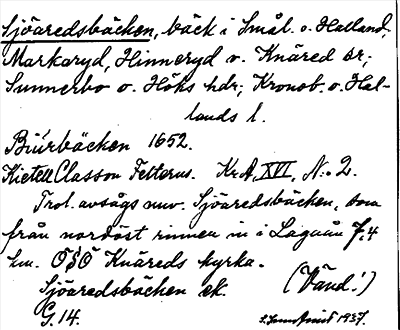 Sjöaredsbäcken, bäck i Smål. o. Halland,
Markaryd, Hinneryd o. Knäred sr;
Sunnerbo o. Höks hdr; Kronob. o. Hal-
lands l.
Biúrbäcken 1652.
Kietell Classon Felterus. KrA, XVI, N:o 2.
Trol. avsågs nuv. Sjöaredsbäcken, som
från nordöst rinner in i Lagaån 7,4
km. OSO Knäreds kyrka.
Sjöaredsbäcken ek. (Vänd!)
G. 14. 1937.